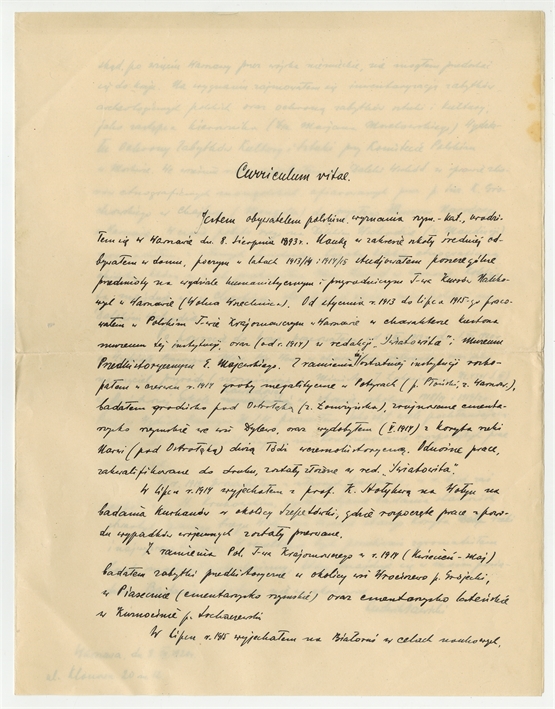 Curriculum vitae.
Jestem obywatelem polskim, wyznania rzym.-kat., urodzi-
łem się w Warszawie dn. 8. sierpnia 1893 r. Naukę w zakresie szkoły średniej od-
bywałem w domu, poczym w latach 1913/14 i 1914/15 studjowałem poszczególne
przedmioty na wydziale humanistycznym i przyrodniczym T-wa Kursów Nauko-
wych w Warszawie (Wolna Wszechnica). Od stycznia r. 1913 do lipca 1915-go praco-
wałem w Polskim T-wie Krajoznawczym w Warszawie w charakterze kustosza
muzeum tej instytucji, oraz (od r. 1914) w redakcji „Światowita" i Muzeum
Przedhistorycznym E. Majewskiego. Z ramienia ostatniej instytucji rozko-
pałem w czerwcu r. 1914 groby megalityczne w (p. Płoński, z. Warszaw.),
badałem grodzisko pod Ostrołęką (z. Łomżyńska), zrujnowane cmenta-
rzysko rzymskie we wsi Dylewo, oraz wydobyłem (V. 1914) z koryta rzeki
Narwi (pod Ostrołęką) dużą łódź wczesnohistoryczną. Odnośne prace,
zakwalifikowane do druku, zostały złożone w red. „Światowita".
W lipcu r. 1914 wyjechałem z prof. K. Hołykwą na Wołyń na
badania kurhanów w okolicy Szepetówki, gdzie rozpoczęte prace z powo-
du wypadków wojennych zostały przerwane.
Z ramienia Pol. T-wa Krajoznawczego w r. 1914 (kwiecień-maj)
badałem zabytki przedhistoryczne w okolicy wsi Wrociszewo p. Grójecki,
w Piasecznie (cmentarzysko rzymskie) oraz cmentarzysko lateńskie
w p. Sochaczewski
W lipcu r. 1915 wyjechałem na Białoruś w celach naukowych,